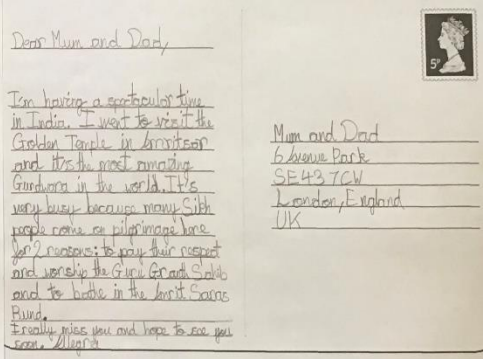 Dear Mum and Dad,
I'm having a spectacular time
in India. I went to visit the
Golden Temple in Amritsar
and it's the most amazing
Gurdwara in the world. It's
very busy because many Sikh
people come on pilgrimage here
for 2 reasons: to pay their respect
and worship the Guru Granth Sahib
and to bathe in the Amrit Saras
Kund.
I really miss you and hope to see you
soon. Allegra
5P
Mum and Dad
6 Avenue Park
SE43 7CW
London, England
UK